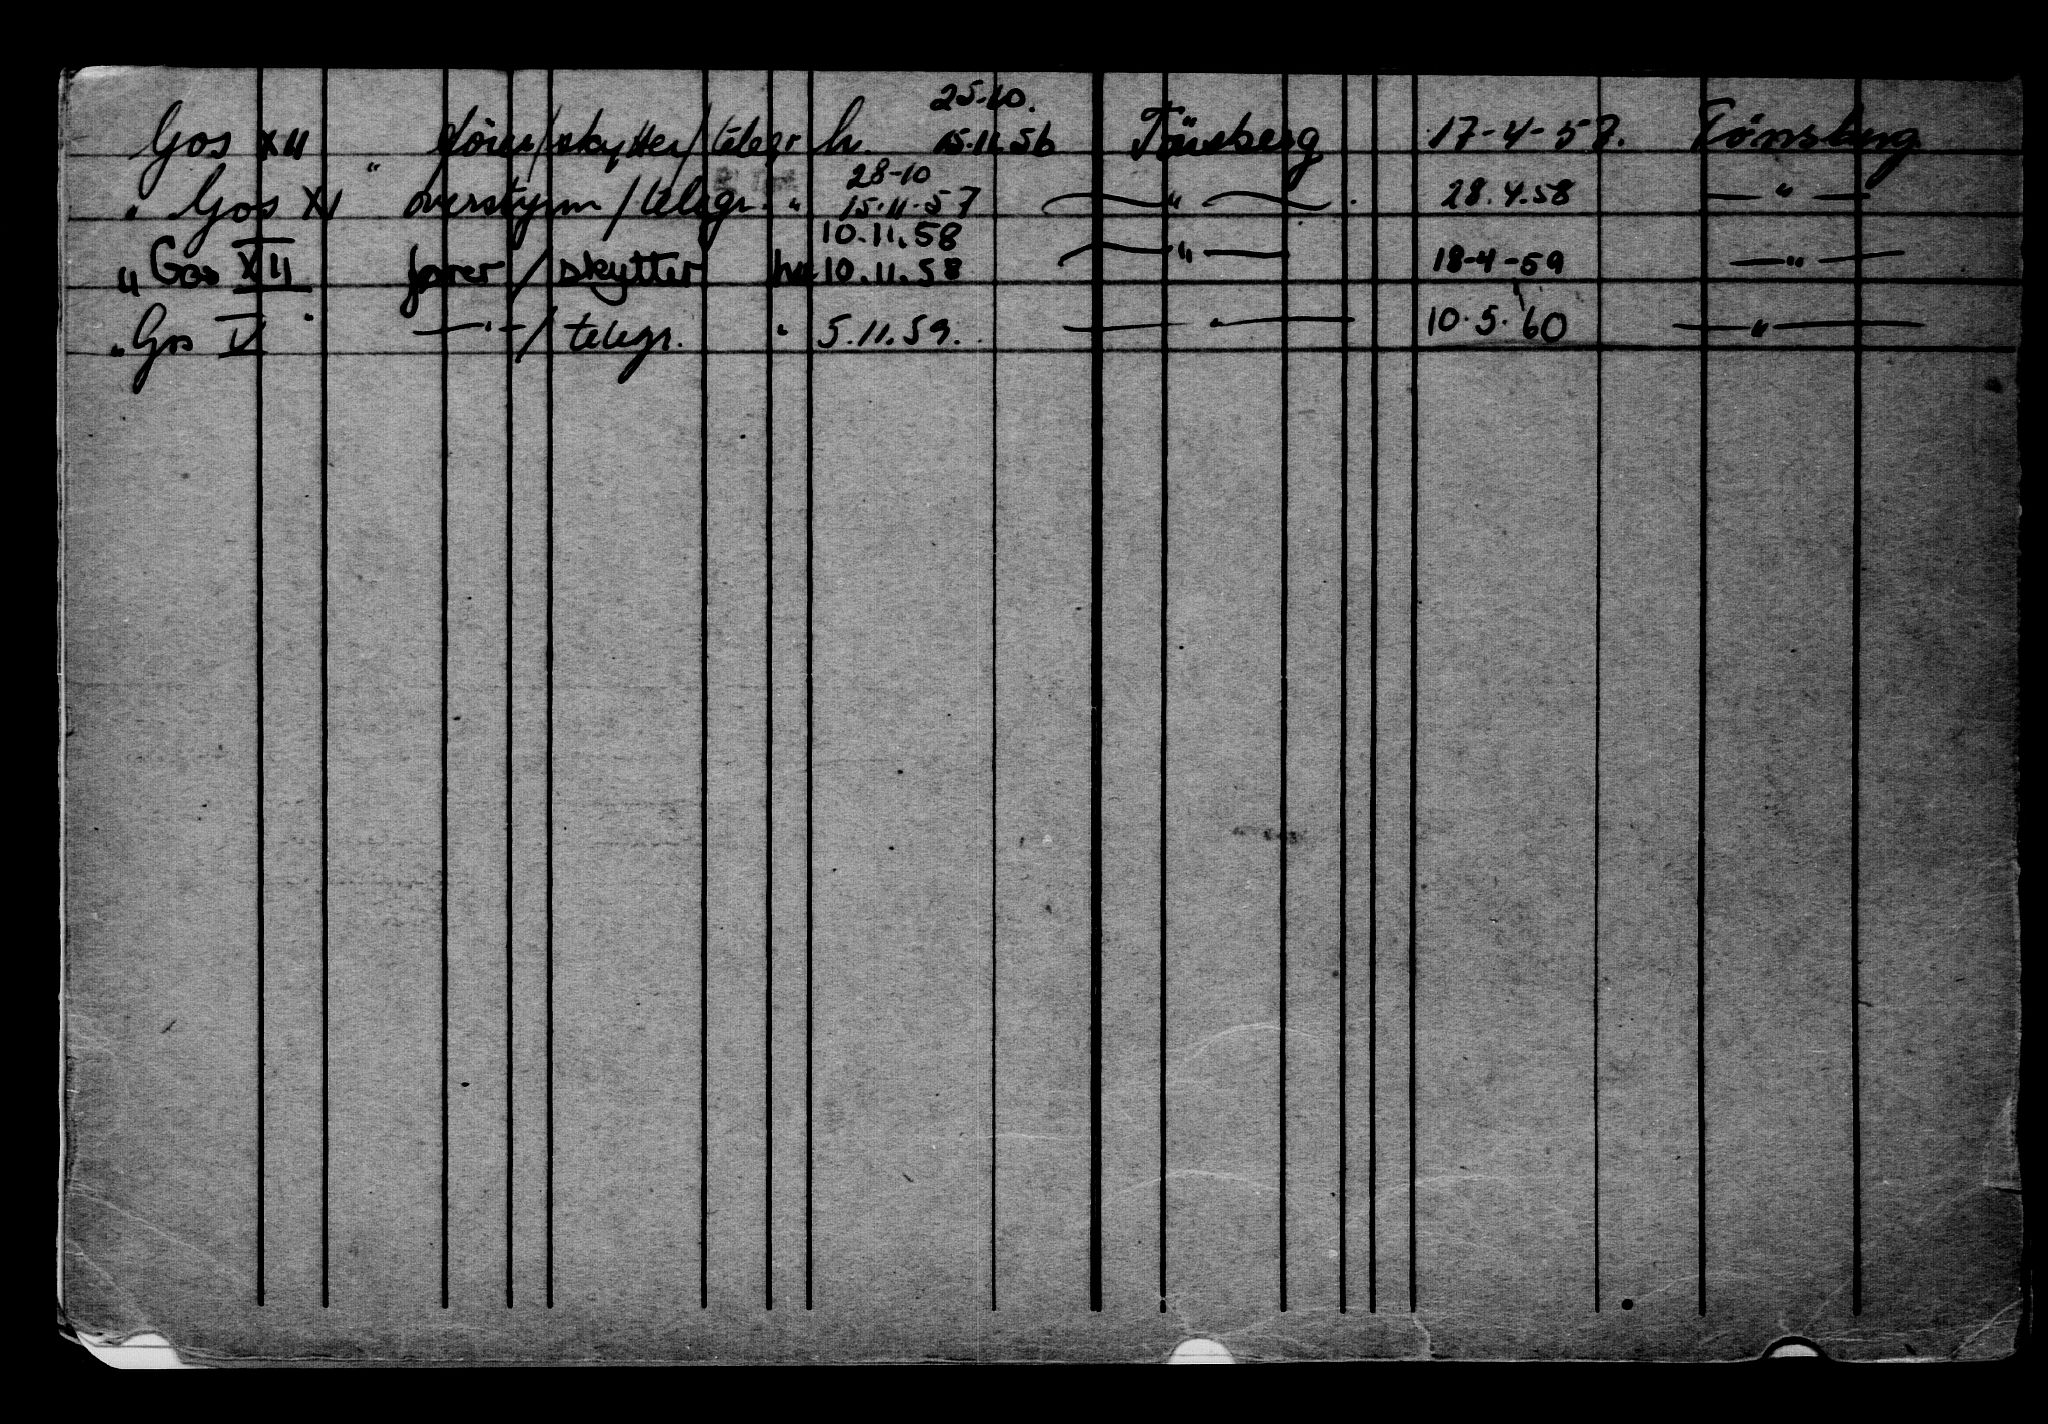 25-10.
Gos XII " fører/skytter/telegr h. 15.11.56 Tönsberg 17-4-57. Tönsberg
28-10
" Gos XI overstyrm/telegr. " 15.11.57 — " — . 28.4.58 — " —
10.11.58
" Gos XII fører / skytter hv 10.11.58 — " — 18-4-59 — " —
" Gos V " — " — / telegr. " 5.11.59. — " — 10.5.60 — " —